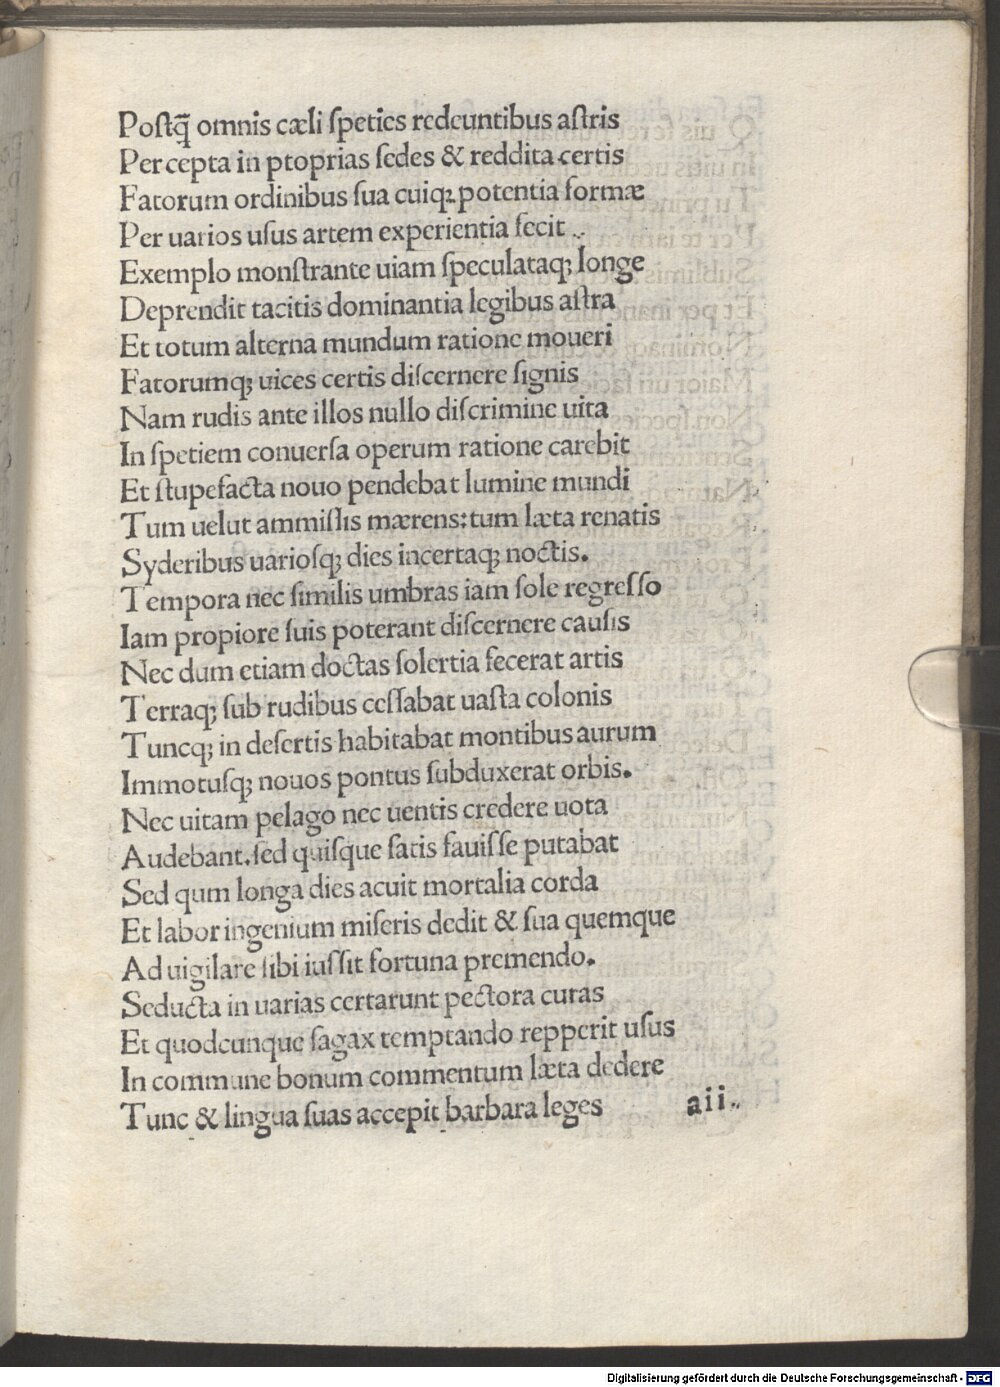 Postq̃ omnis cæli ſpeties redeuntibus aſtris
Per cepta in ptoprias ſedes & reddita certis
Fatorum ordinibus ſua cuiq; potentia formæ
Per uarios uſus artem experientia fecit
Exemplo monſtrante uiam ſpeculataq; longe
Deprendit tacitis dominantia legibus aſtra
Et totum alterna mundum ratione moueri
Fatorumq; uices certis diſcernere ſignis
Nam rudis ante illos nullo diſcrimine uita
In ſpetiem conuerſa operum ratione carebit
Et ſtupefacta nouo pendebat lumine mundi
Tum uelut ammiſſis mærens: tum læta renatis
Syderibus uarioſq; dies incertaq; noctis.
Tempora nec ſimilis umbras iam ſole regreſſo
Iam propiore ſuis poterant diſcernere cauſis
Nec dum etiam doctas ſolertia fecerat artis
Terraq; ſub rudibus ceſſabat uaſta colonis
Tuncq; in deſertis habitabat montibus aurum
Immotuſq; nouos pontus ſubduxerat orbis.
Nec uitam pelago nec uentis credere uota
Audebant. ſed quiſque ſatis fauiſſe putabat
Sed qum longa dies acuit mortalia corda
Et labor ingenium miſeris dedit & ſua quemque
Ad uigilare ſibi iuſſit fortuna premendo.
Seducta in uarias certarunt pectora curas
Et quodcunque ſagax temptando repperit uſus
In commune bonum commentum læta dedere
Tunc & lingua ſuas accepit barbara leges aii.
Digitalisierung gefördert durch die Deutsche Forschungsgemeinschaft - DFG